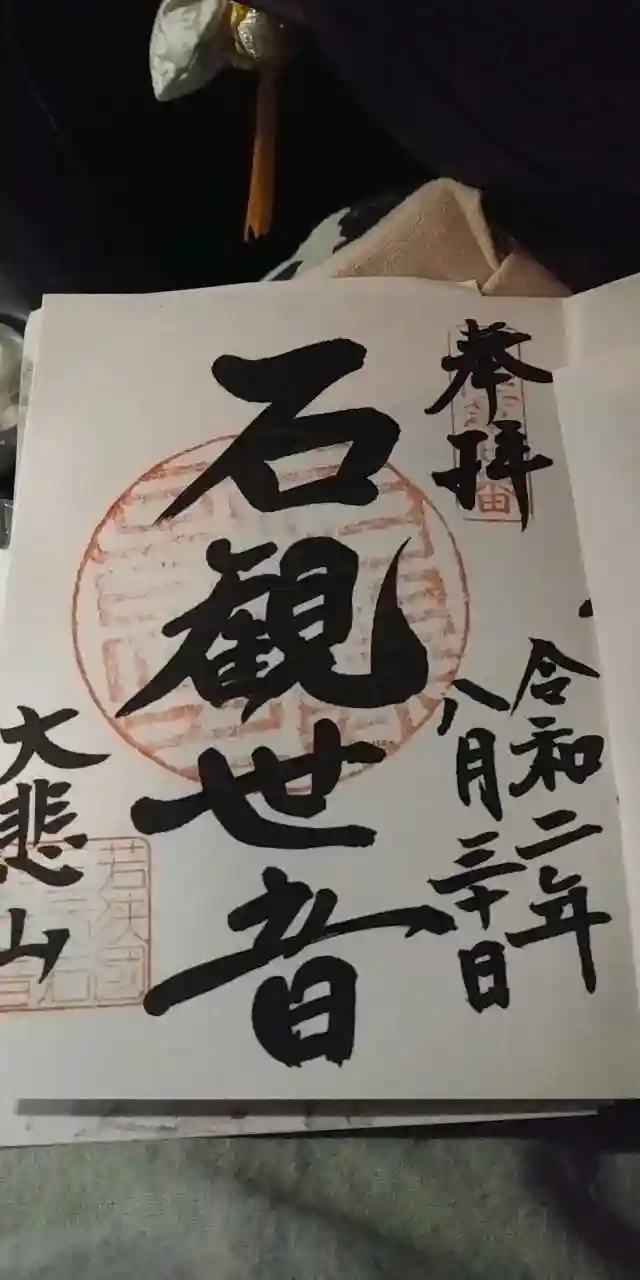 奉拝
令和二年
八月三十日
石観世音
大悲山
若狭國